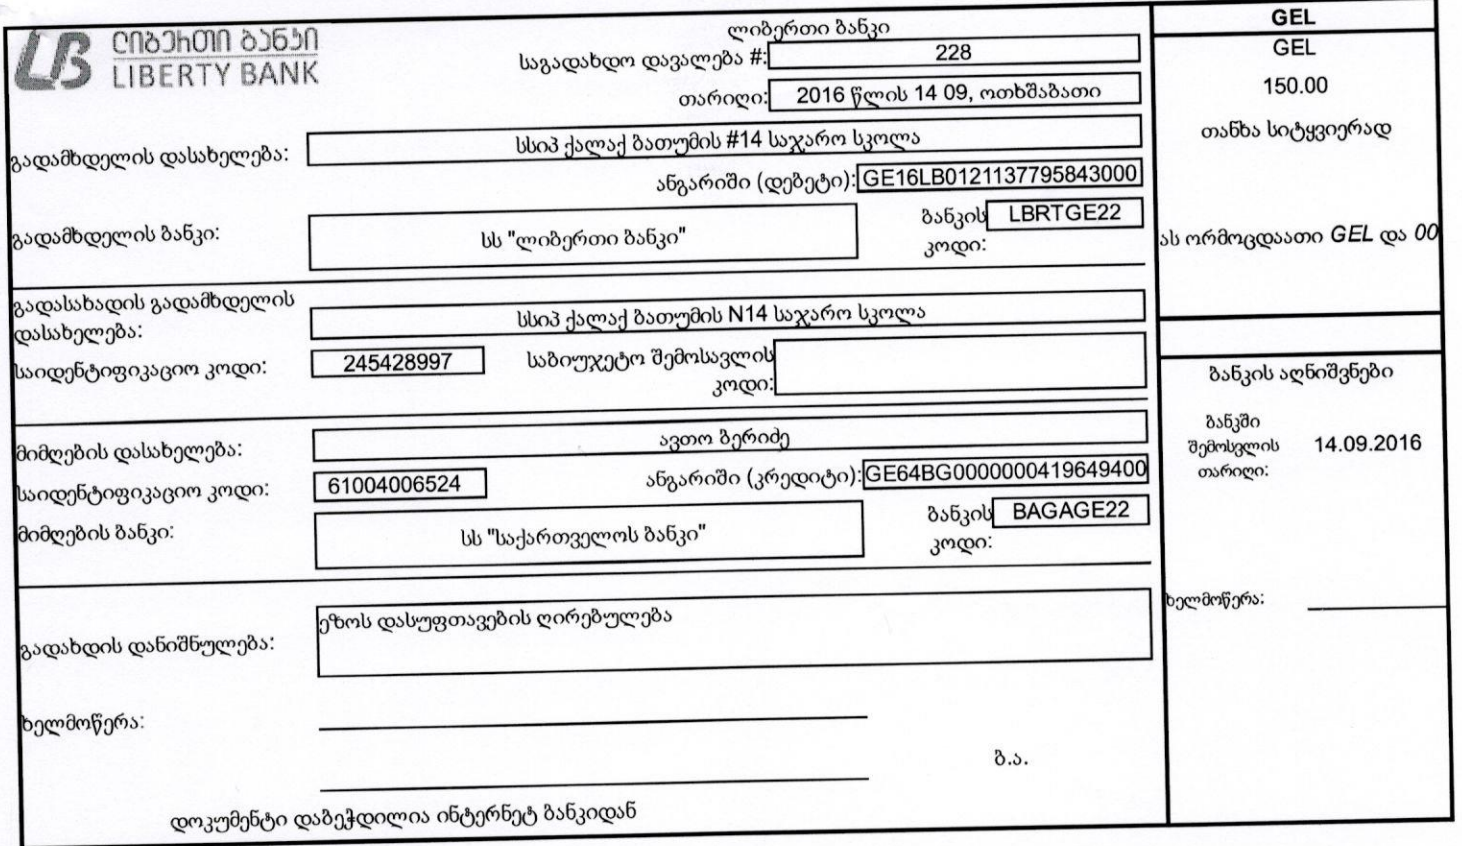 ლიბერთი ბანკი
LIBERTY BANK
ლიბერთი ბანკი
საგადახდო დავალება #: 228
თარიღი: 2016 წლის 14 09, ოთხშაბათი
გადამხდელის დასახელება: სსიპ ქალაქ ბათუმის #14 საჯარო სკოლა
ანგარიში (დებეტი): GE16LB0121137795843000
გადამხდელის ბანკი: სს "ლიბერთი ბანკი" ბანკის კოდი: LBRTGE22
გადასახადის გადამხდელის
დასახელება: სსიპ ქალაქ ბათუმის N14 საჯარო სკოლა
საიდენტიფიკაციო კოდი: 245428997 საბიუჯეტო შემოსავლის
კოდი:
მიმღების დასახელება: ავთო ბერიძე
საიდენტიფიკაციო კოდი: 61004006524 ანგარიში (კრედიტი): GE64BG0000000419649400
მიმღების ბანკი: სს "საქართველოს ბანკი" ბანკის კოდი: BAGAGE22
გადახდის დანიშნულება: ეზოს დასუფთავების ღირებულება
ხელმოწერა:
ბ.ა.
დოკუმენტი დაბეჭდილია ინტერნეტ ბანკიდან
GEL
GEL
150.00
თანხა სიტყვიერად
ას ორმოცდაათი GEL და 00
ბანკის აღნიშვნები
ბანკში
შემოსვლის 14.09.2016
თარიღი:
ხელმოწერა: